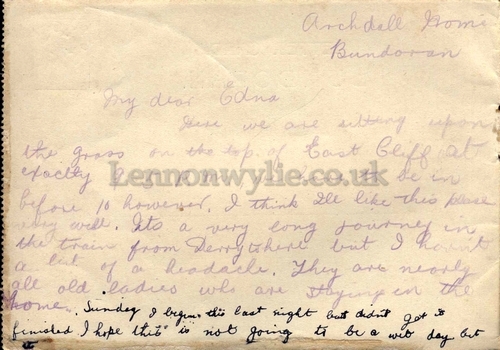 Archdall Home
Bundoran
My dear Edna
Here we are sitting upon
the grass on the top of East Cliff at
exactly to be in
Lennonwylie.co.uk
before 10 however, I think I'll like this place
very well. Its a very long journey in
the train from Derry here but I havnt
a bit of a headache. They are nearly
all old ladies who are staying in the
home. Sunday I began this last night but didn't get it
finished I hope this is not going to be a wet day but
it